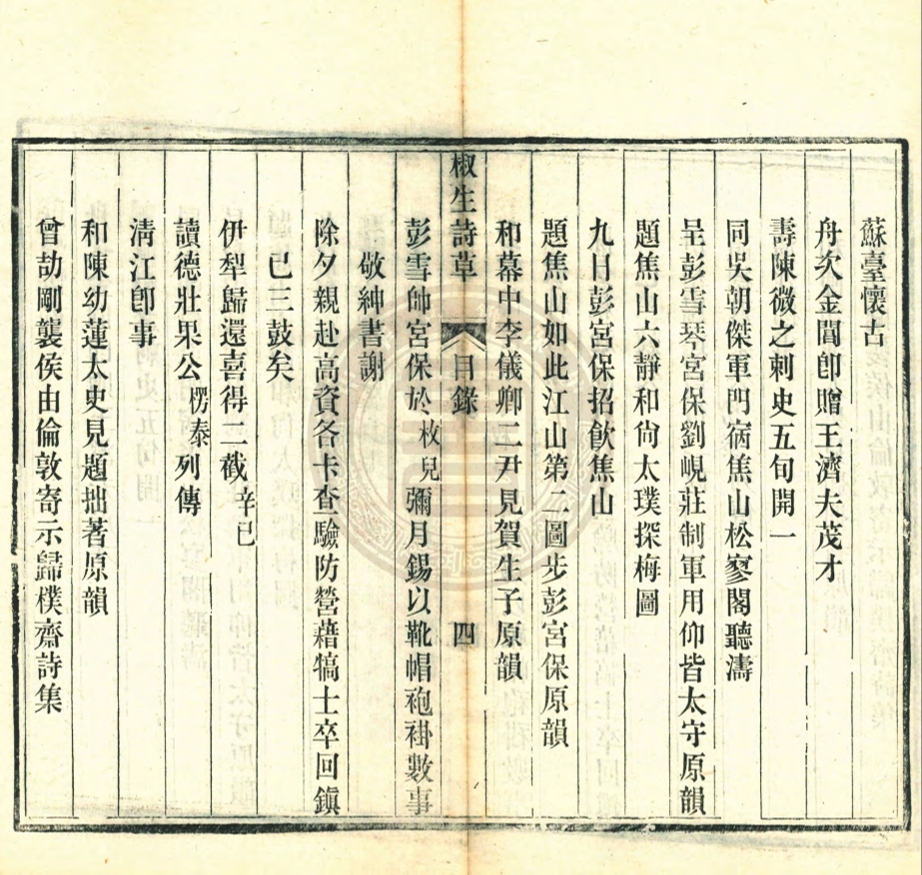 蘇臺懷古
舟次金閶卽贈王濟夫茂才
壽陳微之刺史五旬開一
同吳朝傑軍門宿焦山松寥閣聽濤
呈彭雪琴宮保劉峴莊制軍用仰皆太守原韻
題焦山六靜和尙太璞探梅圖
九日彭宮保招飮焦山
題焦山如此江山第二圖步彭宮保原韻
和幕中李儀卿二尹見賀生子原韻
椒生詩草 目錄 四
彭雪帥宮保於枚兒彌月錫以靴帽袍褂數事
敬紳書謝
除夕親赴高資各卡查驗防營藉犒士卒回鎭
已三鼓矣
伊犁歸還喜得二截辛巳
讀德壯果公楞泰列傳
淸江卽事
和陳幼蓮太史見題拙著原韻
曾劼剛襲侯由倫敦寄示歸樸齋詩集